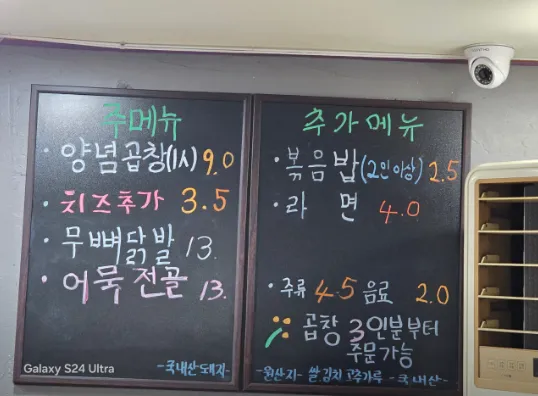 주메뉴
· 양념곱창(1人) 9.0
· 치즈추가 3.5
· 무뼈닭발 13.
· 어묵전골 13.
-국내산 도태지-
추가메뉴
· 볶음밥(2인이상) 2.5
· 라면 4.0
· 주류 4.5 음료 2.0
곱창 3인분부터
주문가능
-원산지- 쌀,김치 고추가루 -국내산-
Galaxy S24 Ultra